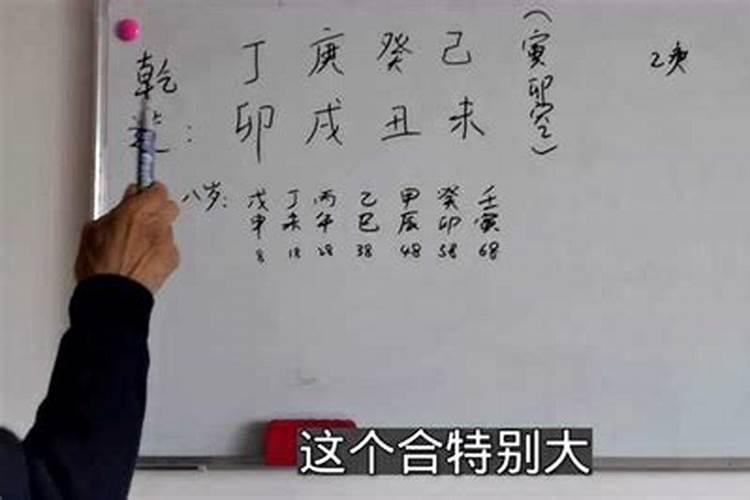 丁 庚 癸 己
乾造: 卯 戌 丑 未
(寅卯空)
乙庚
八岁: 戊申 丁未 丙午 乙巳 甲辰 癸卯 壬寅
8 18 28 38 48 58 68
这个合特别大